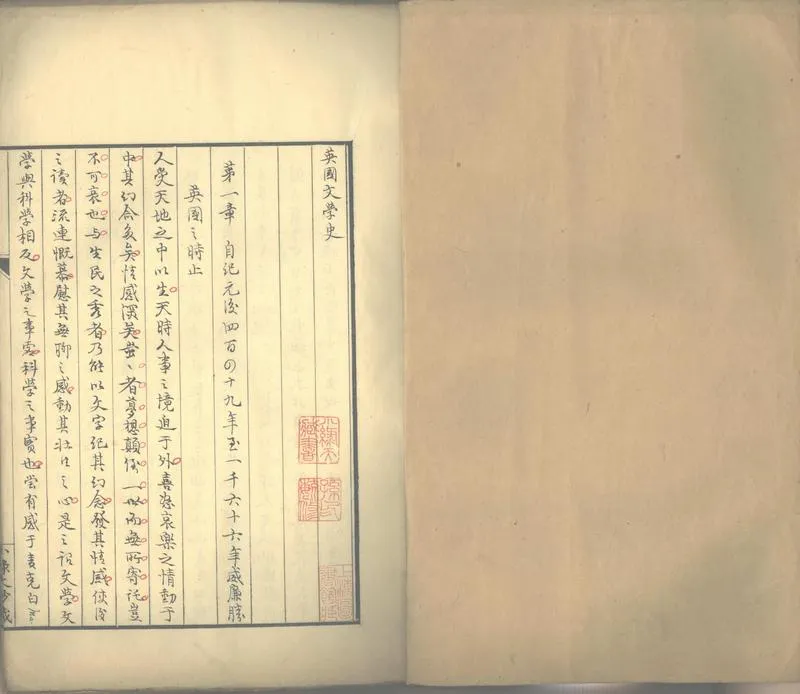 英國文學史
第一章 自紀元後四百四十九年至一千六十六年威廉勝
英國之時止
人受天地之中以生天時人事之境迫于外喜怒哀樂之情動于
中其幻念多矣情感深矣蚩蚩者夢想顛倒一逝而無所寄託豈
不可哀也与生民之秀者乃能以文字紀其幻念發其情感使後
之讀者流連慨慕慰其無聊之感動其壯往之心是之謂文學文
學與科學相反文學之事虛科學之事實也嘗有感于麦克白